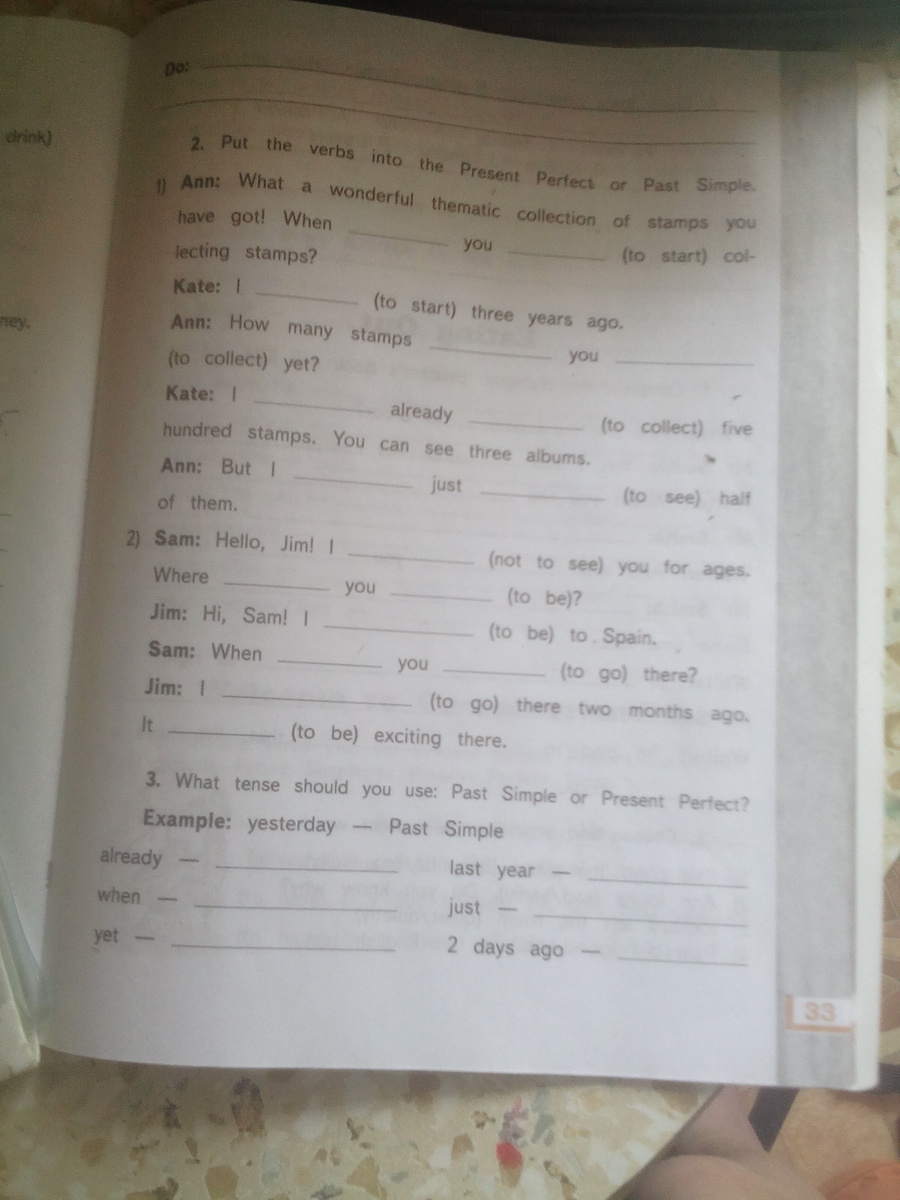 drink)
ney.
Do: ____
2. Put the verbs into the Present Perfect or Past Simple.
1) Ann: What a wonderful thematic collection of stamps you
have got! When ____ you ____ (to start) col-
lecting stamps?
Kate: I ____ (to start) three years ago.
Ann: How many stamps ____ you ____
(to collect) yet?
Kate: I ____ already ____ (to collect) five
hundred stamps. You can see three albums.
Ann: But I ____ just ____ (to see) half
of them.
2) Sam: Hello, Jim! I ____ (not to see) you for ages.
Where ____ you ____ (to be)?
Jim: Hi, Sam! I ____ (to be) to Spain.
Sam: When ____ you ____ (to go) there?
Jim: I ____ (to go) there two months ago.
It ____ (to be) exciting there.
3. What tense should you use: Past Simple or Present Perfect?
Example: yesterday — Past Simple
already — ____ last year — ____
when — ____ just — ____
yet — ____ 2 days ago — ____
33